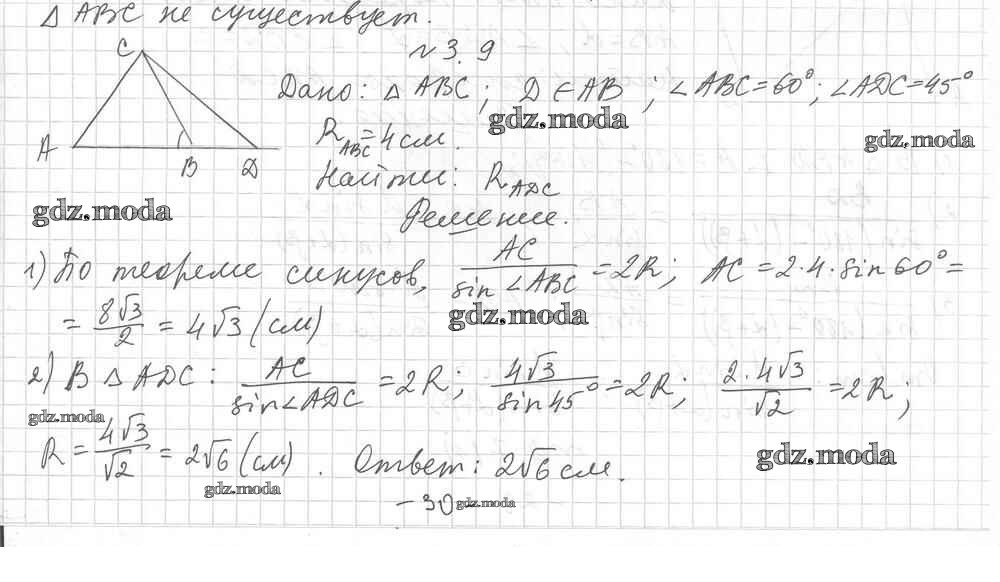 △ABC не существует.
№3.9
C
A
B
D
Дано: △ABC; D∈AB; ∠ABC=60°; ∠ADC=45°
gdz.moda
gdz.moda
R_ABC=4 см.
Найти: R_ADC
gdz.moda
Решение.
1) По теореме синусов, AC/sin∠ABC = 2R; AC = 2·4·sin60° =
= 8√3/2 = 4√3 (см)
gdz.moda
2) В △ADC: AC/sin∠ADC = 2R; 4√3/sin45° = 2R; 2·4√3/√2 = 2R;
gdz.moda
R = 4√3/√2 = 2√6 (см). Ответ: 2√6 см.
gdz.moda
gdz.moda
-30-
gdz.moda